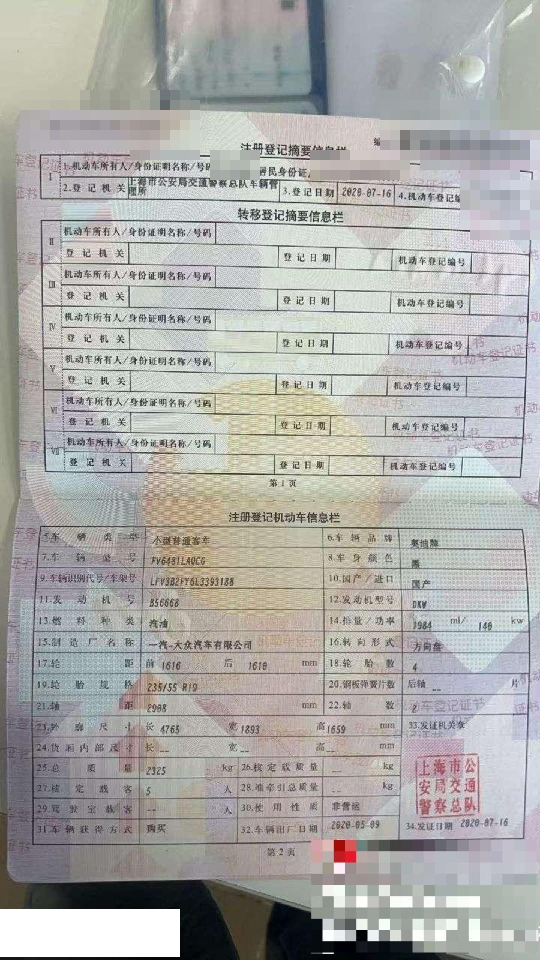 注册登记摘要信息栏
I 1.机动车所有人/身份证明名称/号码 居民身份证
2.登记机关 上海市公安局交通警察总队车辆管理所 3.登记日期 2020-07-16 4.机动车登记编号
转移登记摘要信息栏
II 机动车所有人/身份证明名称/号码
登记机关 登记日期 机动车登记编号
III 机动车所有人/身份证明名称/号码
登记机关 登记日期 机动车登记编号
IV 机动车所有人/身份证明名称/号码
登记机关 登记日期 机动车登记编号
V 机动车所有人/身份证明名称/号码
登记机关 登记日期 机动车登记编号
VI 机动车所有人/身份证明名称/号码
登记机关 登记日期 机动车登记编号
VII 机动车所有人/身份证明名称/号码
登记机关 登记日期 机动车登记编号
第1页
注册登记机动车信息栏
5.车辆类型 小型普通客车 6.车辆品牌 奥迪牌
7.车辆型号 FV6481LAQCG 8.车身颜色 黑
9.车辆识别代号/车架号 LFV3B2FY6L3393188 10.国产/进口 国产
11.发动机号 B56668 12.发动机型号 DKW
13.燃料种类 汽油 14.排量/功率 1984 ml/ 140 kw
15.制造厂名称 一汽-大众汽车有限公司 16.转向形式 方向盘
17.轮距 前 1616 后 1610 mm 18.轮胎数 4
19.轮胎规格 235/55 R19 20.钢板弹簧片数 后轴 -- 片
21.轴距 2908 mm 22.轴数 2
23.外廓尺寸 长 4765 宽 1893 高 1659 mm 33.发证机关章
24.货厢内部尺寸 长 -- 宽 -- 高 -- mm
25.总质量 2325 kg 26.核定载质量 -- kg
27.核定载客 5 人 28.准牵引总质量 -- kg
29.驾驶室载客 -- 人 30.使用性质 非营运
31.车辆获得方式 购买 32.车辆出厂日期 2020-05-09 34.发证日期 2020-07-16
上海市公
安局交通
警察总队
第2页